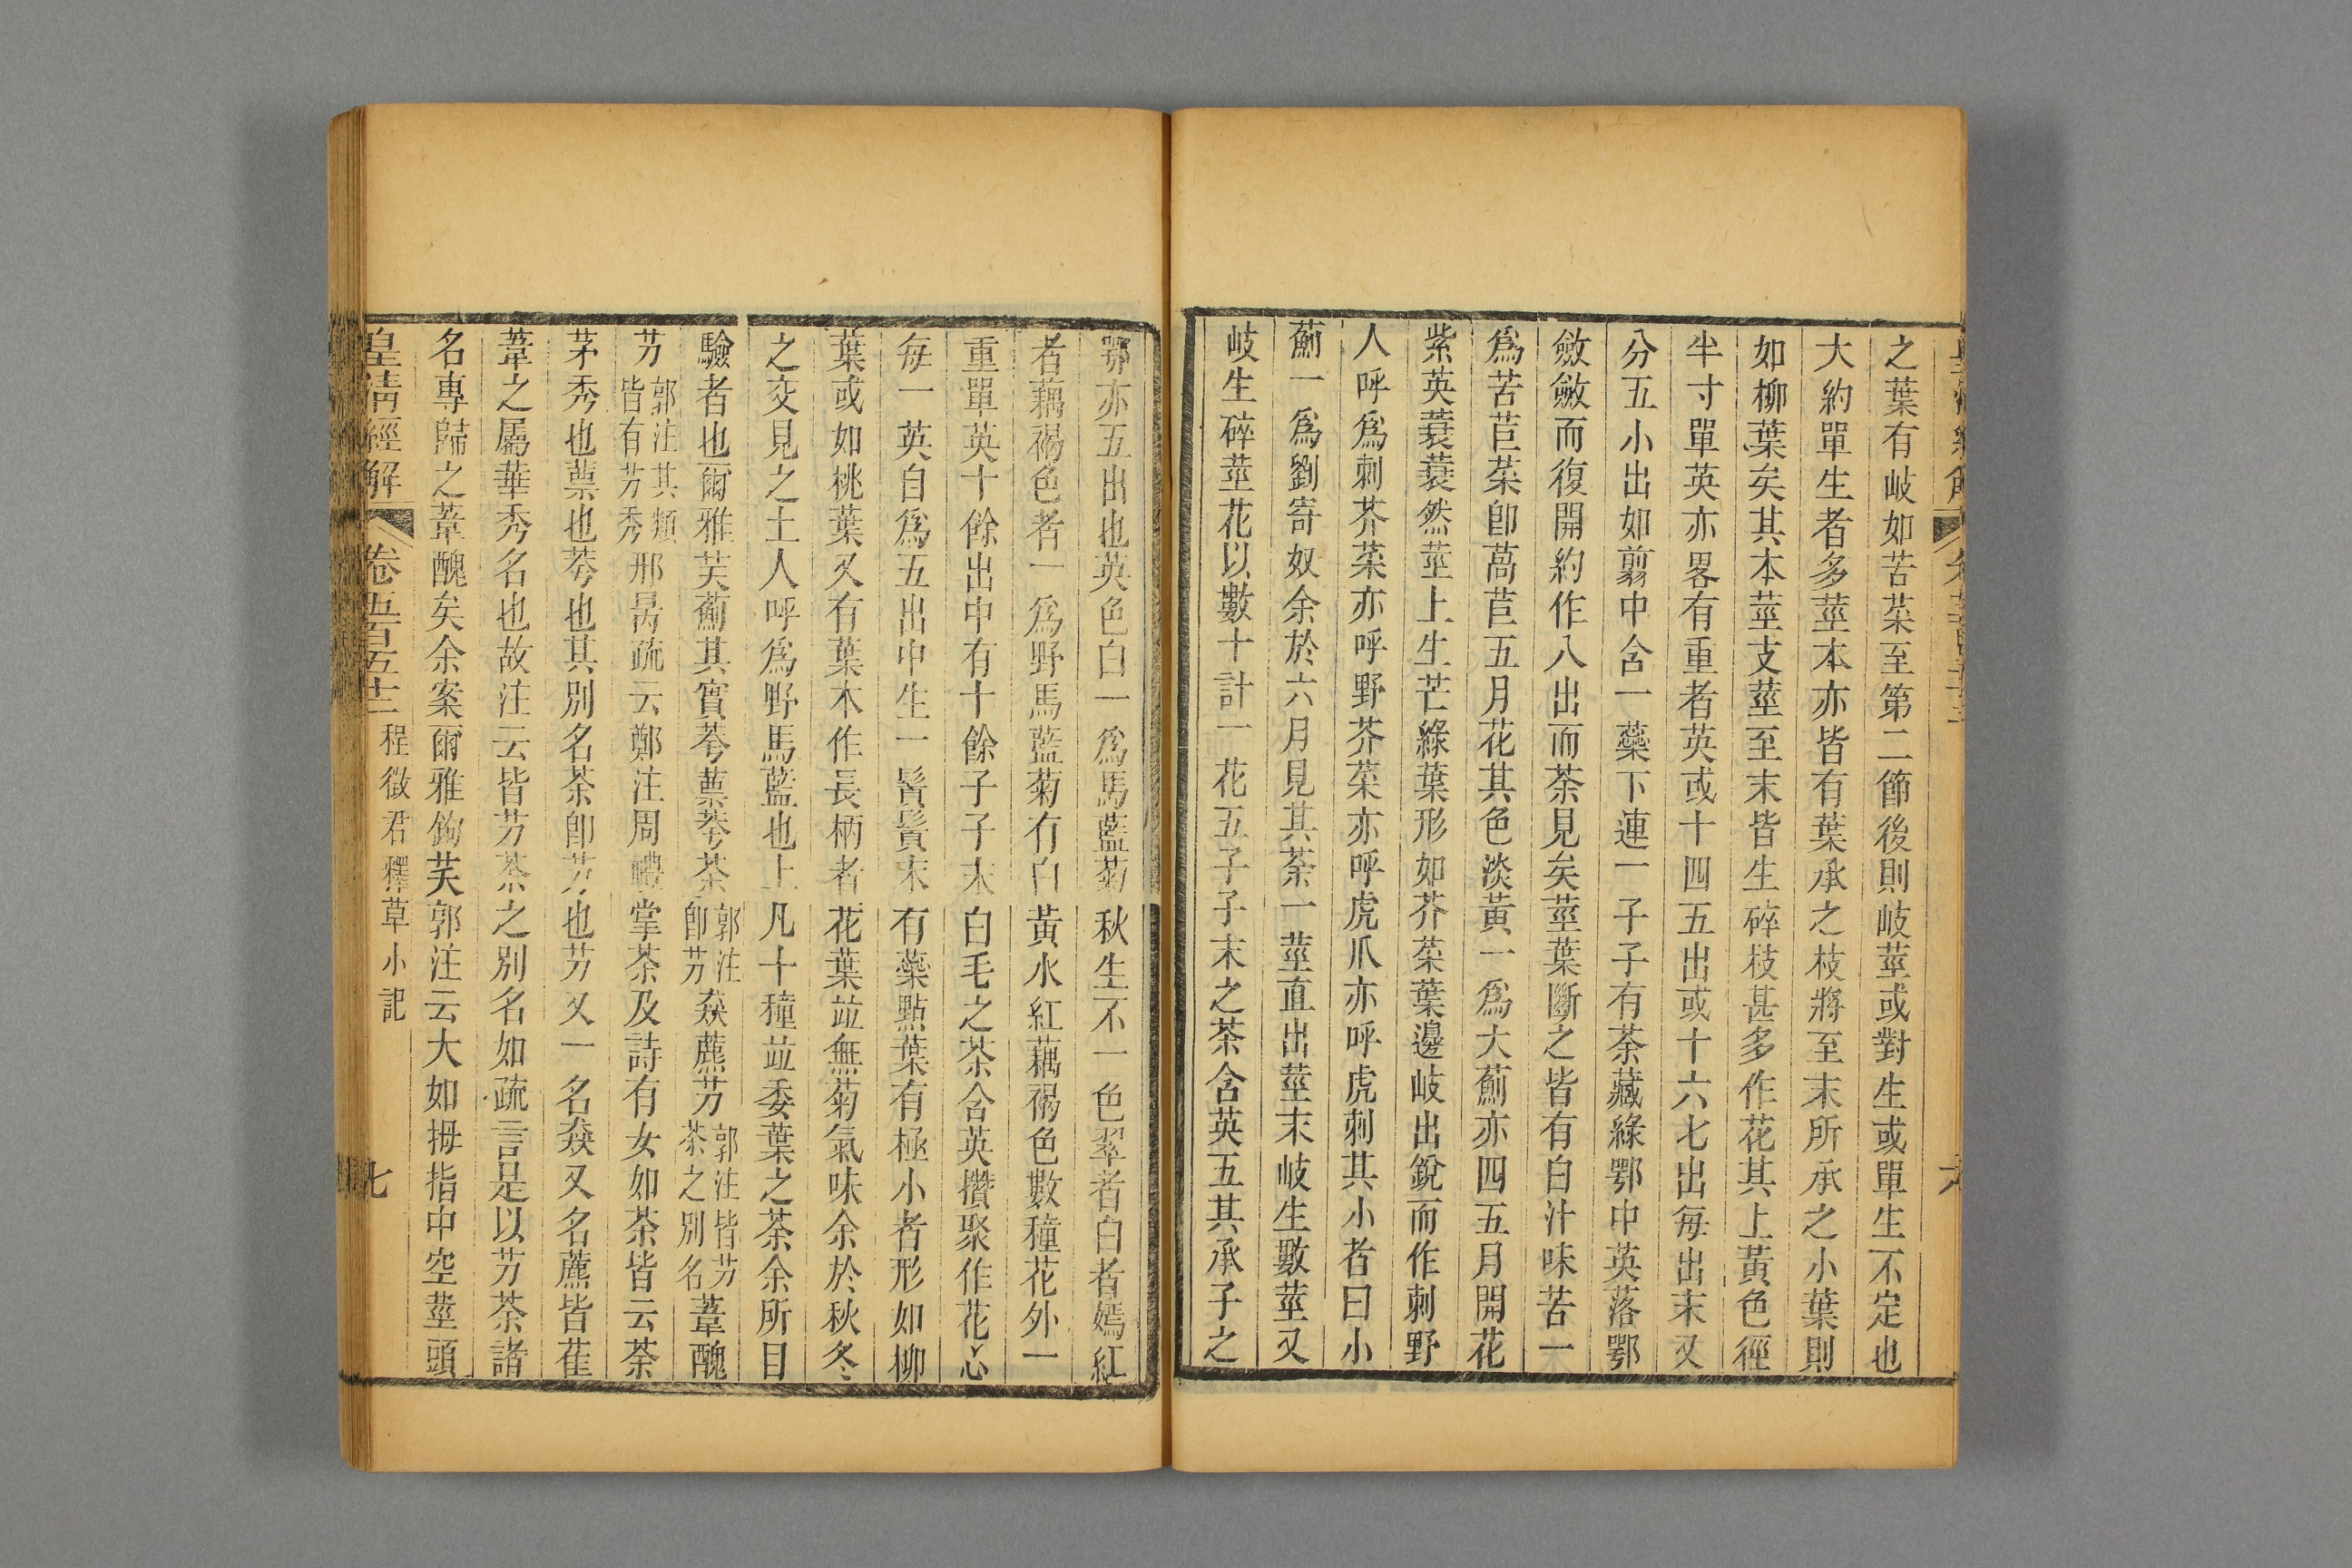 之葉有岐如苦菜至第二節後則岐莖或對生或單生不定也
大約單生者多莖本亦皆有葉承之枝將至末所承之小葉則
如柳葉矣其本莖支莖至末皆生碎枝甚多作花其上黃色徑
半寸單英亦畧有重者英或十四五出或十六七出每出末又
分五小出如翦中含一蘂下連一子子有荼藏綠鄂中英落鄂
斂斂而復開約作八出而荼見矣莖葉斷之皆有白汁味苦一
爲苦苣菜卽萵苣五月花其色淡黃一爲大薊亦四五月開花
紫英蓑蓑然莖上生芒綠葉形如芥菜葉邊岐出銳而作刺野
人呼爲刺芥菜亦呼野芥菜亦呼虎爪亦呼虎刺其小者曰小
薊一爲劉寄奴余於六月見其荼一莖直出莖末岐生數莖又
岐生碎莖花以數十計一花五子子末之荼含英五其承子之
鄂亦五出也英色白一爲馬藍菊秋生不一色翠者白者嫣紅
者藕褐色者一爲野馬藍菊有白黃水紅藕褐色數種花外一
重單英十餘出中有十餘子子末白毛之荼含英攢聚作花心
每一英自爲五出中生一鬚鬚末有蘂點葉有極小者形如柳
葉或如桃葉又有葉本作長柄者花葉竝無菊氣味余於秋冬
之交見之土人呼爲野馬藍也上凡十種竝委葉之荼余所目
驗者也爾雅芙薊其實荂藨荂荼郭注卽芀猋藨芀郭注皆芀荼之別名葦醜
芀郭注其類皆有芀秀邢昺疏云鄭注周禮掌荼及詩有女如荼皆云荼
茅秀也藨也荂也其別名荼卽芀也芀又一名猋又名藨皆萑
葦之屬華秀名也故注云皆芀荼之別名如疏言是以芀荼諸
名專歸之葦醜矣余案爾雅鉤芺郭注云大如拇指中空莖頭
皇淸經解 卷五百五十二 程徵君釋草小記 七